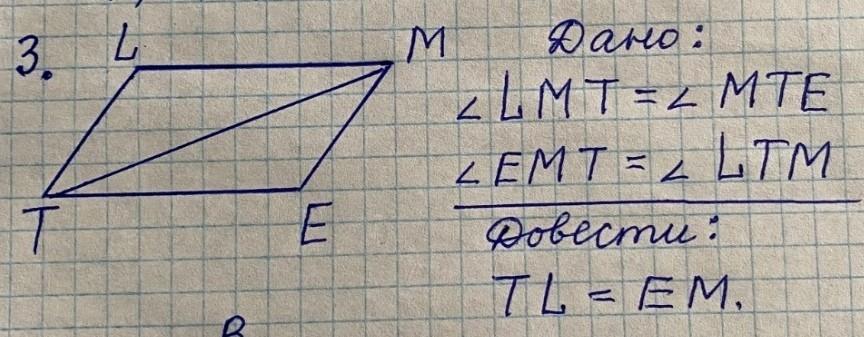 3.
L
M
T
E
Дано:
∠LMT = ∠MTE
∠EMT = ∠LTM
Довести:
TL = EM.